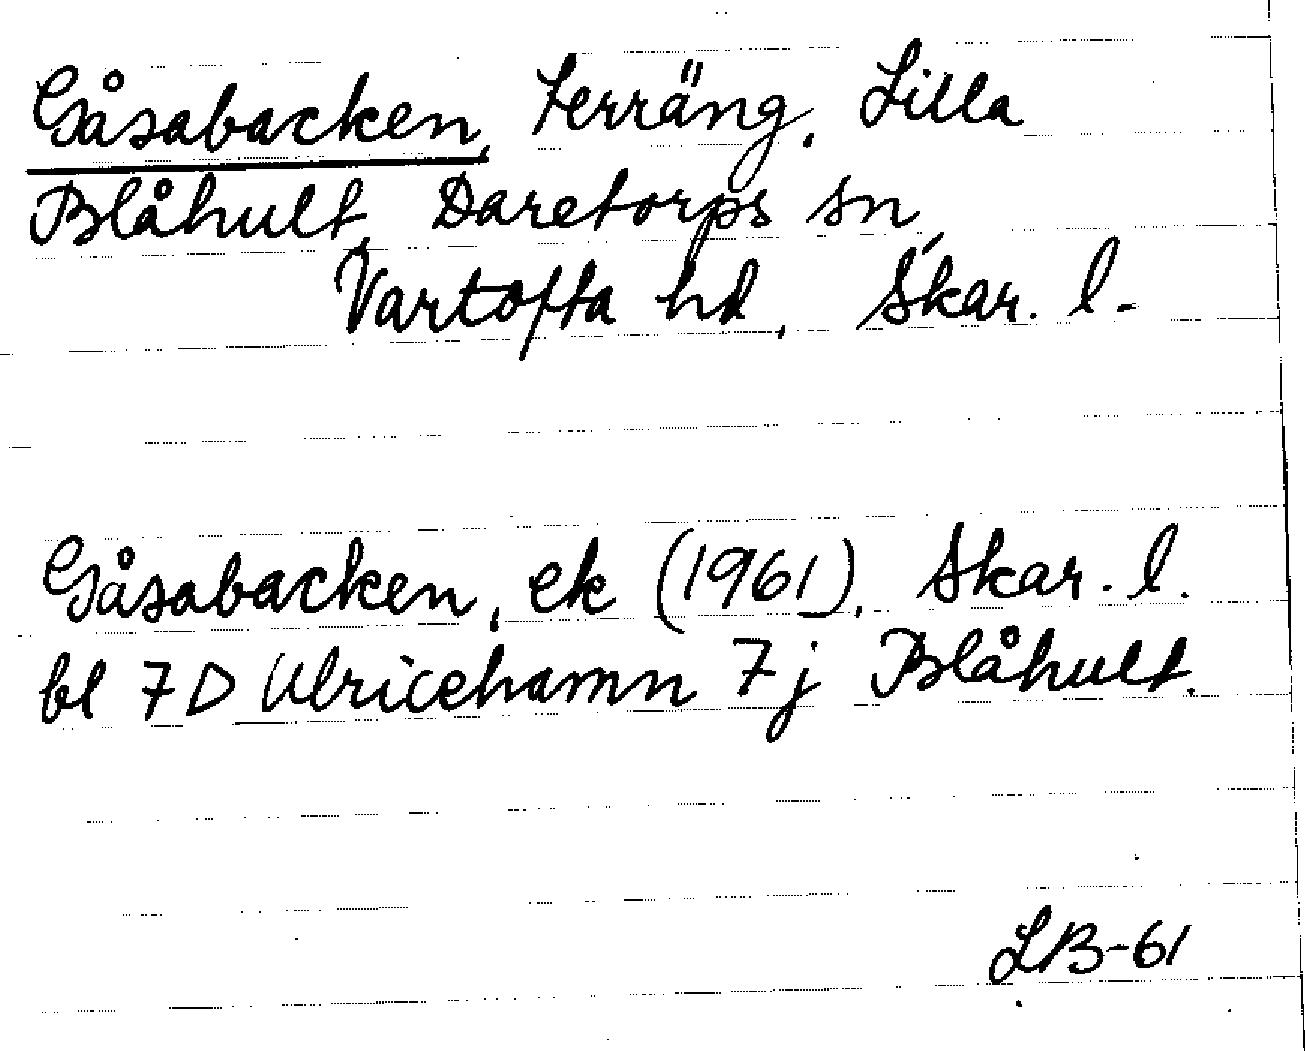 Gåsabacken, Terräng, Lilla
Blåhult, Daretorps sn,
Vartofta hd, Skar. l.
Gåsabacken, ek (1961), Skar. l.
bl 7D Ulricehamn 7j Blåhult.
LB-61